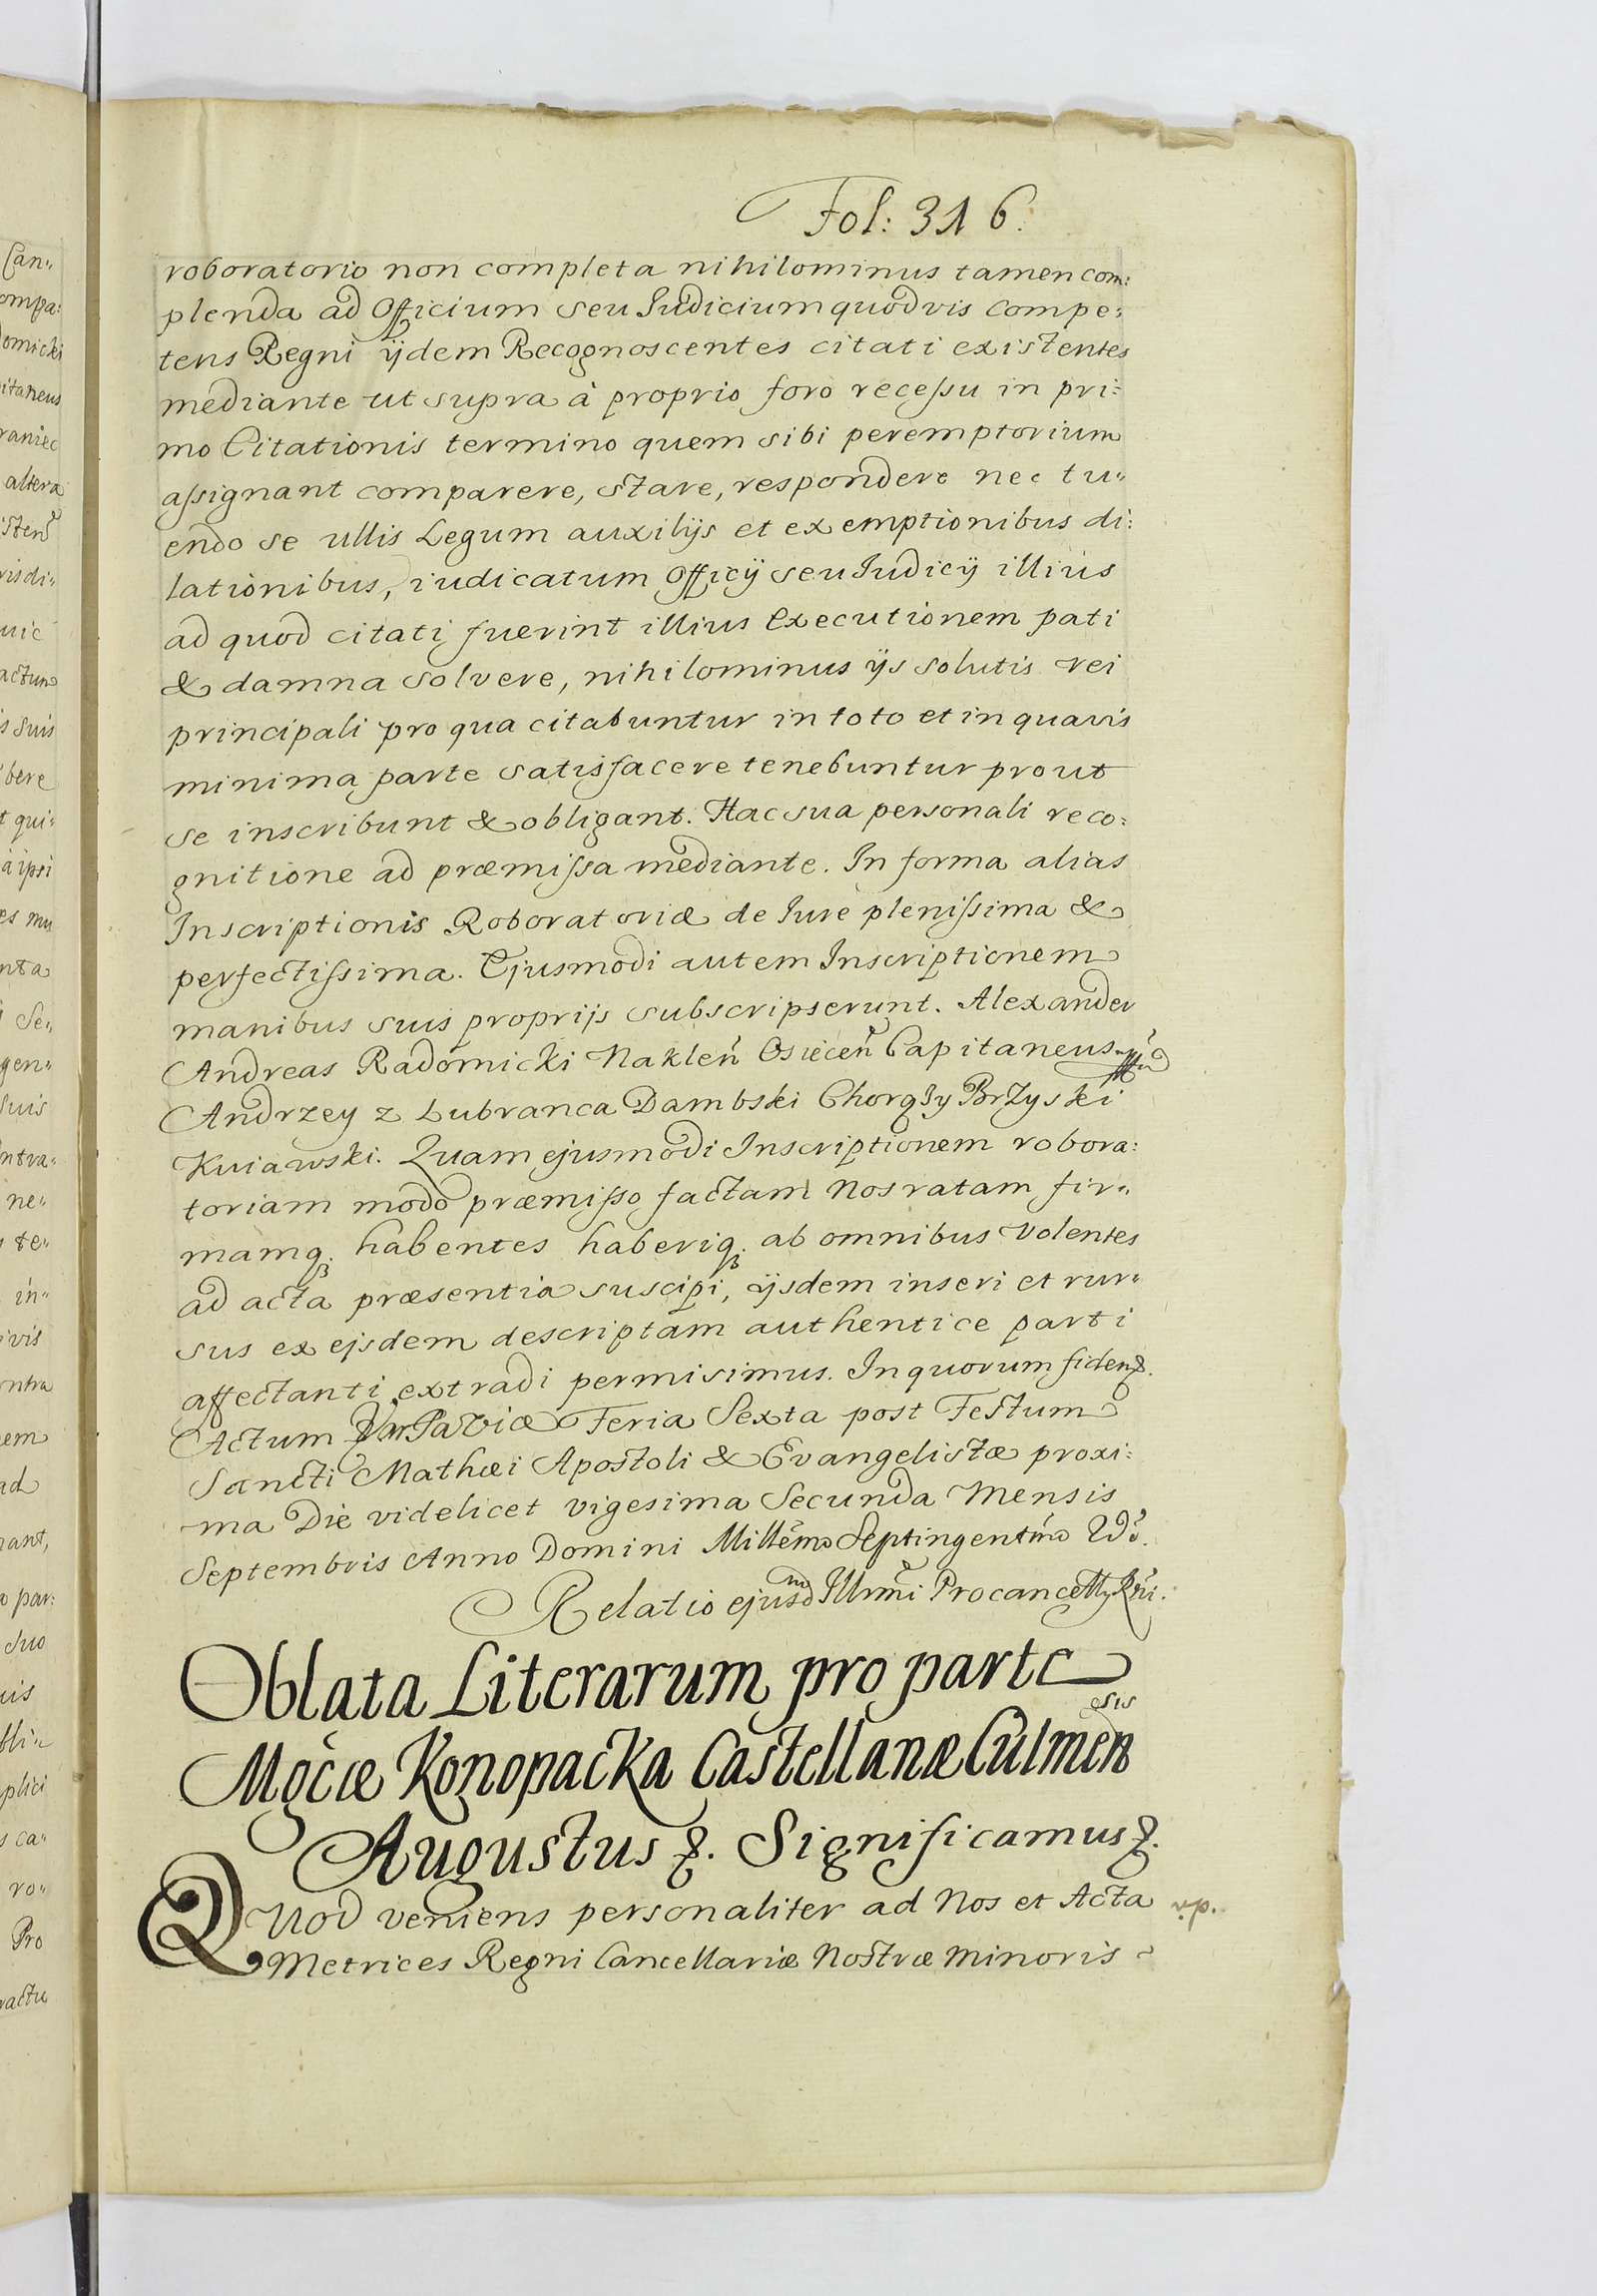 Fol: 316.
roboratorio non completa nihilominus tamen com:
plenda ad Officium seu Iudicium quodvis compe:
tens Regni ijdem Recognoscentes citati existentes
mediante ut supra à proprio foro recessu in pri:
mo Citationis termino quem sibi peremptorium
assignant comparere, stare, respondere nec tu"
endo se ullis Legum auxilijs et exemptionibus di:
lationibus, iudicatum Officij seu Iudicij illius
ad quod citati fuerint illius Executionem pati
& damna solvere, nihilominus ijs solutis rei
principali pro qua citabuntur in toto et in quavis
minima parte satisfacere tenebuntur prout
se inscribunt & obligant. Hac sua personali reco:
gnitione ad præmissa mediante. In forma alias
Inscriptionis Roboratoriæ de Iure plenissima &
perfectissima. Ejusmodi autem Inscriptionem
manibus suis proprijs subscripserunt. Alexander
Andreas Radomicki Naklen Osiecen Capitaneus
Andrzey z Lubranca Dambski Chorąży Brzyski
Kuiawski. Quam ejusmodi Inscriptionem robora:
toriam modo præmisso factam Nos ratam fir"
mamq; habentes haberiq; ab omnibus volentes
ad acta præsentia suscipi, ijsdem inseri et rur"
sus ex ejsdem descriptam authentice parti
affectanti extradi permisimus. In quorum fidem &.
Actum Varsaviæ Feria Sexta post Festum
Sancti Mathæi Apostoli & Evangelistæ proxi:
ma Die videlicet vigesima Secunda Mensis
Septembris Anno Domini Millẽmo Septingentmo
Relatio ejusd Illrmi Procancellrij Rni.
Oblata Literarum pro parte
Mgcæ Konopacka Castellanæ Culmensis
Augustus &. Significamus &.
Quod veniens personaliter ad Nos et Acta
Metrices Regni Cancellariæ Nostræ Minoris